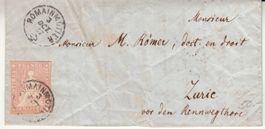 Monsieur
Monsieur M. Römer, doct. en droit
Zuric
vor dem Rennwegthore
ROMAINMOTIER